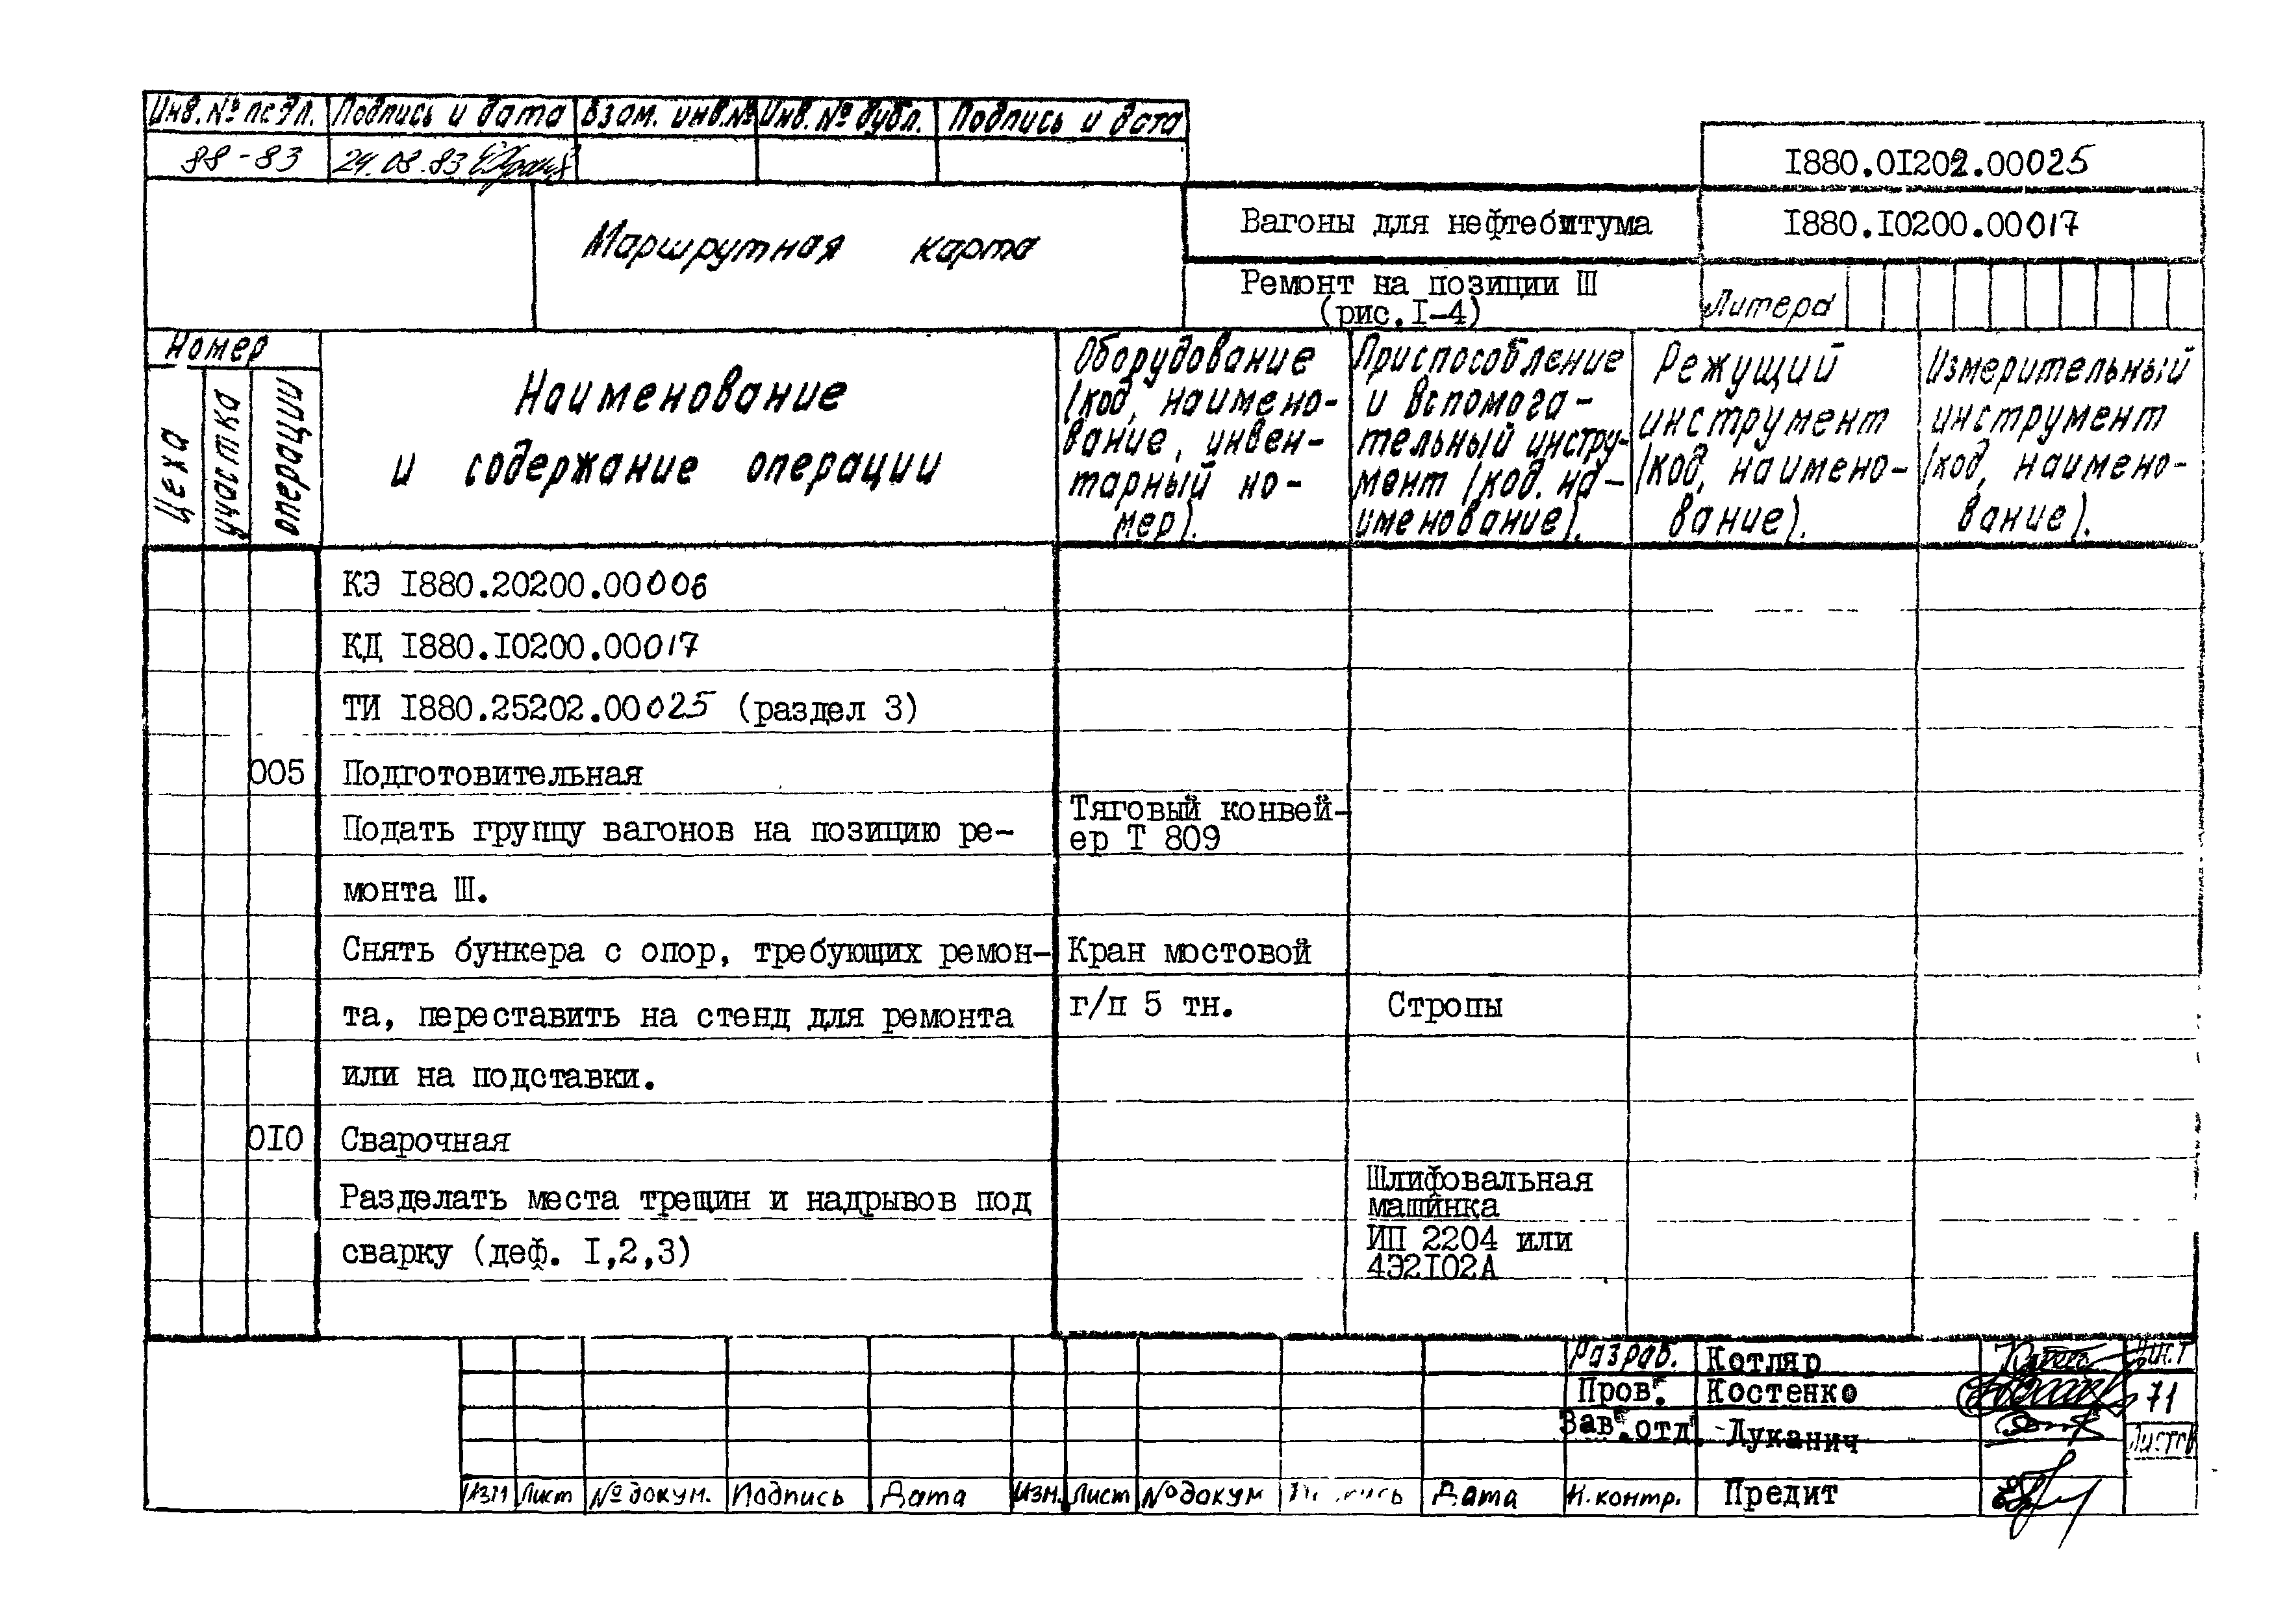 Инв. № подл. Подпись и дата Взам. инв.№ Инв. № дубл. Подпись и дата
88-83 24.08.83
I880.0I202.00025
Маршрутная карта
Вагоны для нефтебитума
I880.I0200.00017
Ремонт на позиции Ш
(рис.I-4)
Литера
Номер
Цеха
участка
операции
Наименование
и содержание операции
Оборудование
/код, наимено-
вание, инвен-
тарный но-
мер).
Приспособление
и вспомога-
тельный инстру-
мент /код. на-
именование).
Режущий
инструмент
/код, наимено-
вание).
Измерительный
инструмент
/код, наимено-
вание).
КЭ I880.20200.00006
КД I880.I0200.00017
ТИ I880.25202.00025 (раздел 3)
005 Подготовительная
Подать группу вагонов на позицию ре-
монта Ш.
Тяговый конвей-
ер Т 809
Снять бункера с опор, требующих ремон-
та, переставить на стенд для ремонта
или на подставки.
Кран мостовой
г/п 5 тн.
Стропы
0I0 Сварочная
Разделать места трещин и надрывов под
сварку (деф. I,2,3)
Шлифовальная
машинка
ИП 2204 или
4Э2I02А
Разраб. Котляр
Лист
Пров. Костенко
71
Зав.отд. Луканич
Листов
Изм Лист № докум. Подпись Дата Изм. Лист № докум Подпись Дата Н.контр. Предит